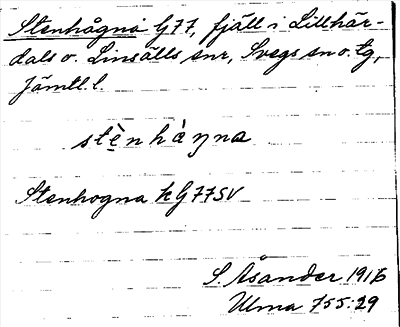 Stenhågna G77, fjäll i Lillhär-
dals o. Linsälls snr, Svegs sn o. tg,
Jämtl. l.
stẹ̀nhàŋna
Stenhogna kG77SV
S. Åsander 1916
Ulma 755:29